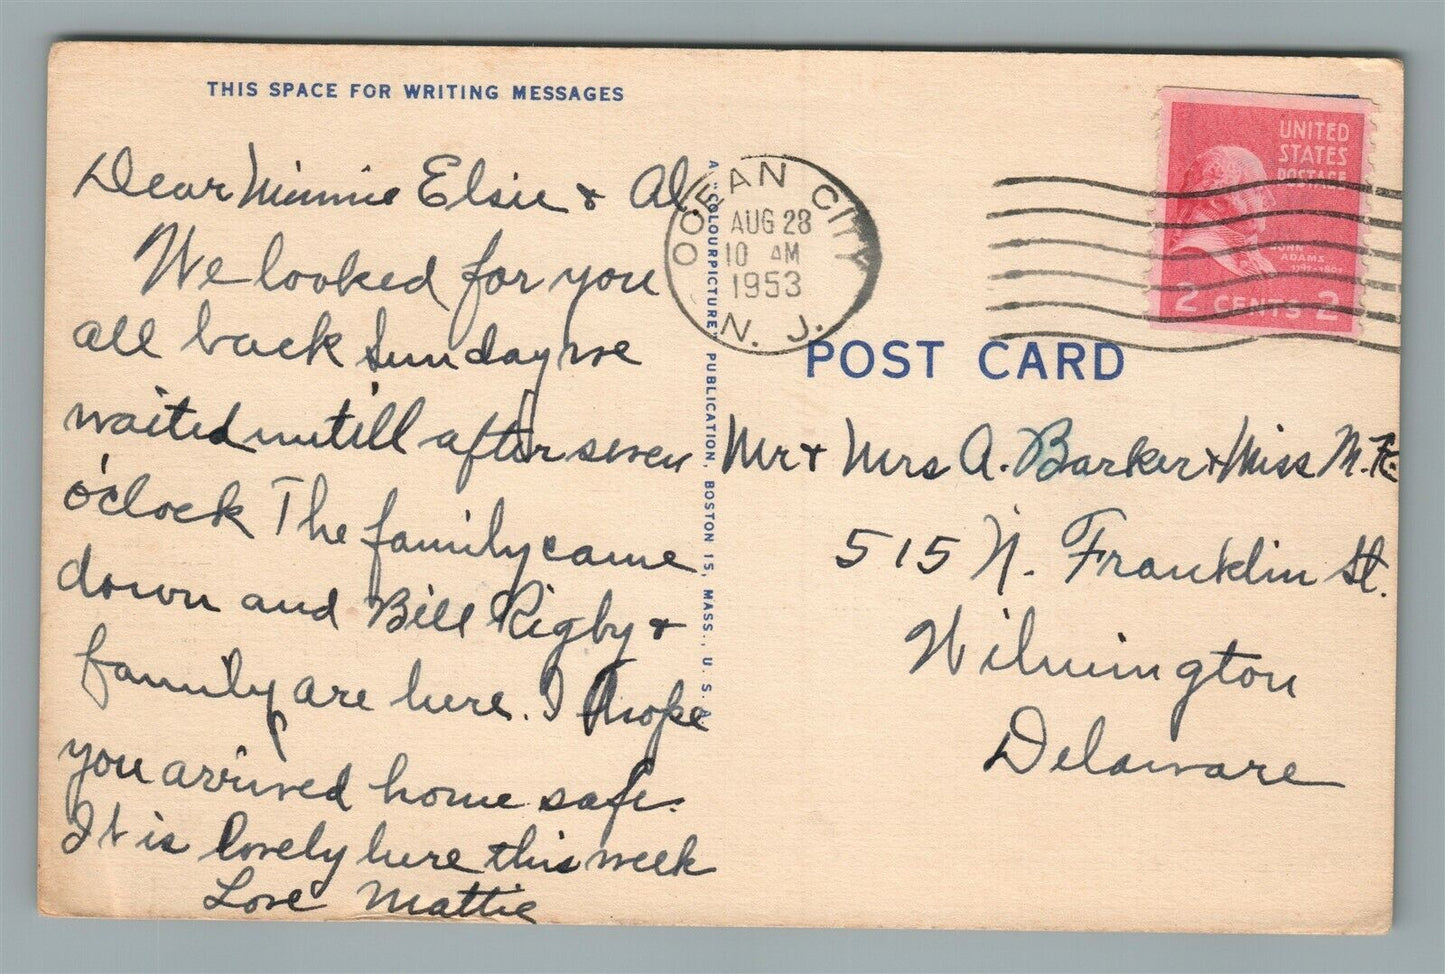 THIS SPACE FOR WRITING MESSAGES
Dear Minnie Elsie & Al.
We looked for you
all back Sunday we
waited untill after seven
o'clock The family came
down and Bill Rigby &
family are here. I hope
you arrived home safe.
It is lovely here this week
Love Mattie
A "COLOURPICTURE" PUBLICATION, BOSTON 15, MASS., U.S.A.
OCEAN CITY
AUG 28
10 AM
1953
N. J.
UNITED
STATES
POSTAGE
JOHN
ADAMS
1797-1801
2 CENTS 2
POST CARD
Mr & Mrs A. Barker & Miss M. K.
515 N. Franklin St.
Wilmington
Delaware